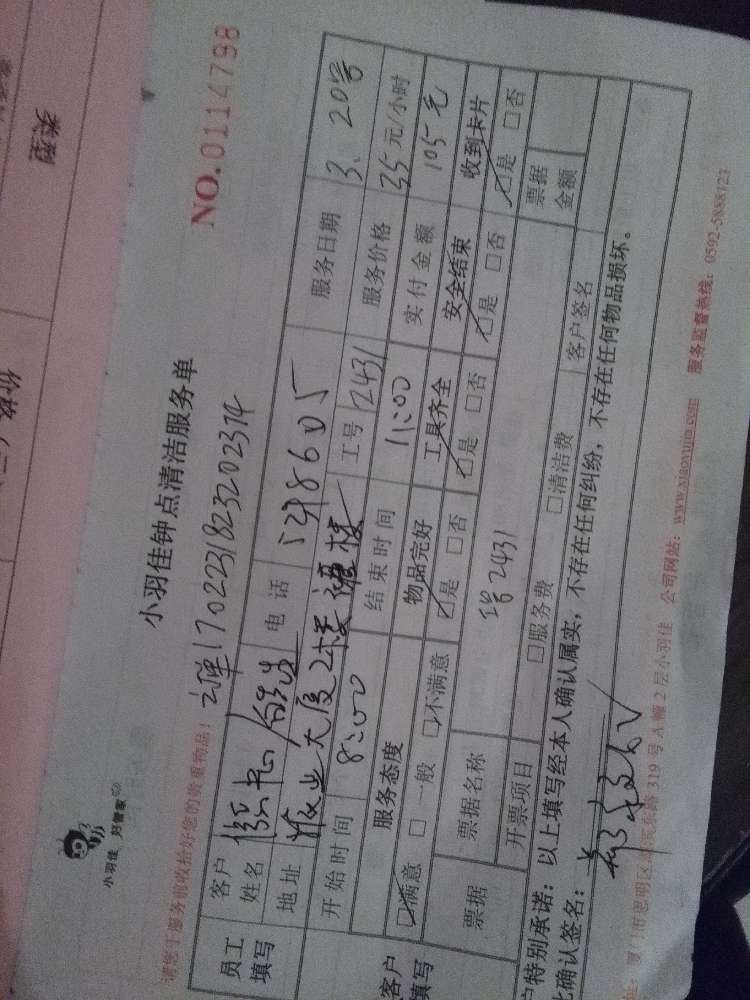 类型
小羽佳 好管家
小羽佳钟点清洁服务单
NO.0114798
请您于服务前收拾好您的贵重物品!
170223182320231
员工填写
客户姓名
电话
服务日期 3、20号
地址 大厦2楼
工号 2431
服务价格 35元/小时
开始时间 8:00
结束时间 11:00
实付金额 105元
客户填写
服务态度
物品完好
工具齐全
安全结束
收到卡片
☑满意 □一般 □不满意
☑是 □否
☑是 □否
☑是 □否
☑是 □否
票据
票据名称
2431
票据金额
开票项目
□服务费 □清洁费
客户签名
户特别承诺:以上填写经本人确认属实,不存在任何纠纷,不存在任何物品损坏。
确认签名:
厦门市思明区 319号A幢2层小羽佳 公司网站:www.xiaoyujia.com 服务监督热线:0592-5888123